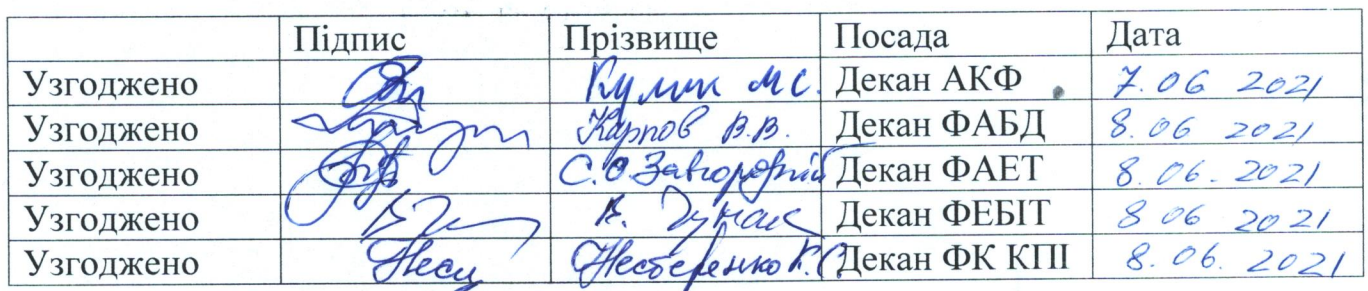 Підпис Прізвище Посада Дата
Узгоджено Кулик М.С. Декан АКФ 7.06 2021
Узгоджено Карпов В.В. Декан ФАБД 8.06 2021
Узгоджено С.О.Завгородній Декан ФАЕТ 8.06.2021
Узгоджено В. Декан ФЕБІТ 8 06 2021
Узгоджено Нестеренко К.С. Декан ФК КПІ 8.06.2021